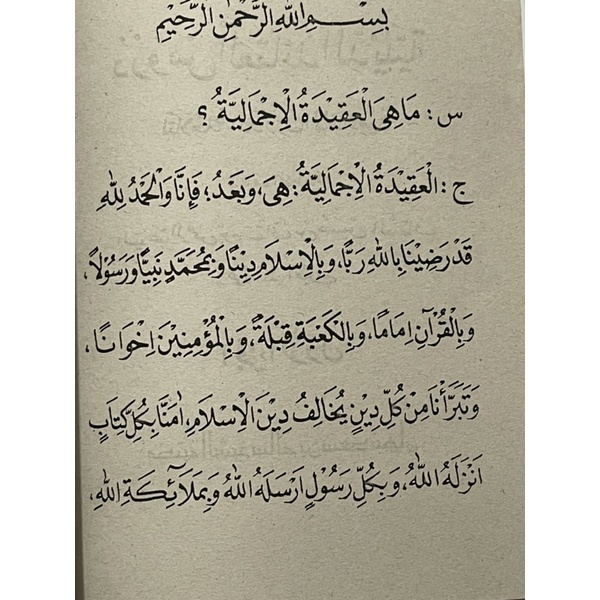 بِسْمِ اللهِ الرَّحْمٰنِ الرَّحِيْمِ
س : مَا هِىَ الْعَقِيْدَةُ الْاِجْمَالِيَّةُ ؟
ج : الْعَقِيْدَةُ الْاِجْمَالِيَّةُ : هِىَ، وَبَعْدُ ؛ فَاِنَّا وَالْحَمْدُ لِلّٰهِ
قَدْ رَضِيْنَا بِاللهِ رَبًّا، وَبِالْاِسْلَامِ دِيْنًا وَبِمُحَمَّدٍ نَبِيًّا وَرَسُوْلًا،
وَبِالْقُرْآنِ اِمَامًا، وَبِالْكَعْبَةِ قِبْلَةً، وَبِالْمُؤْمِنِيْنَ اِخْوَانًا،
وَتَبَرَّأْنَا مِنْ كُلِّ دِيْنٍ يُخَالِفُ دِيْنَ الْاِسْلَامِ، اٰمَنَّا بِكُلِّ كِتَابٍ
اَنْزَلَهُ اللهُ، وَبِكُلِّ رَسُوْلٍ اَرْسَلَهُ اللهُ وَبِمَلَآئِكَةِ اللهِ،